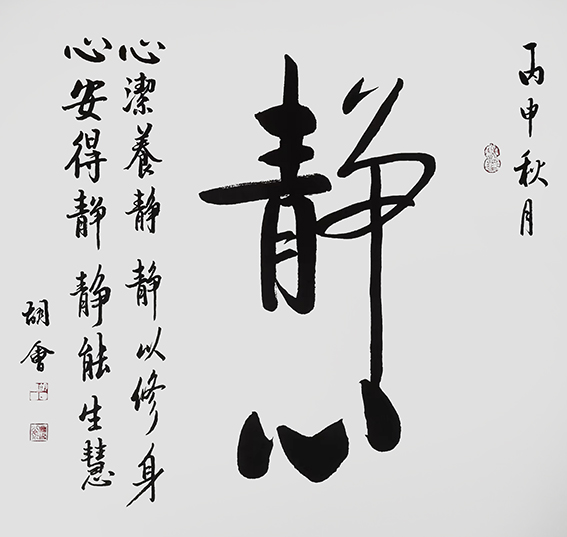 丙申秋月
静心
心潔養静 静以修身
心安得静 静能生慧
胡會